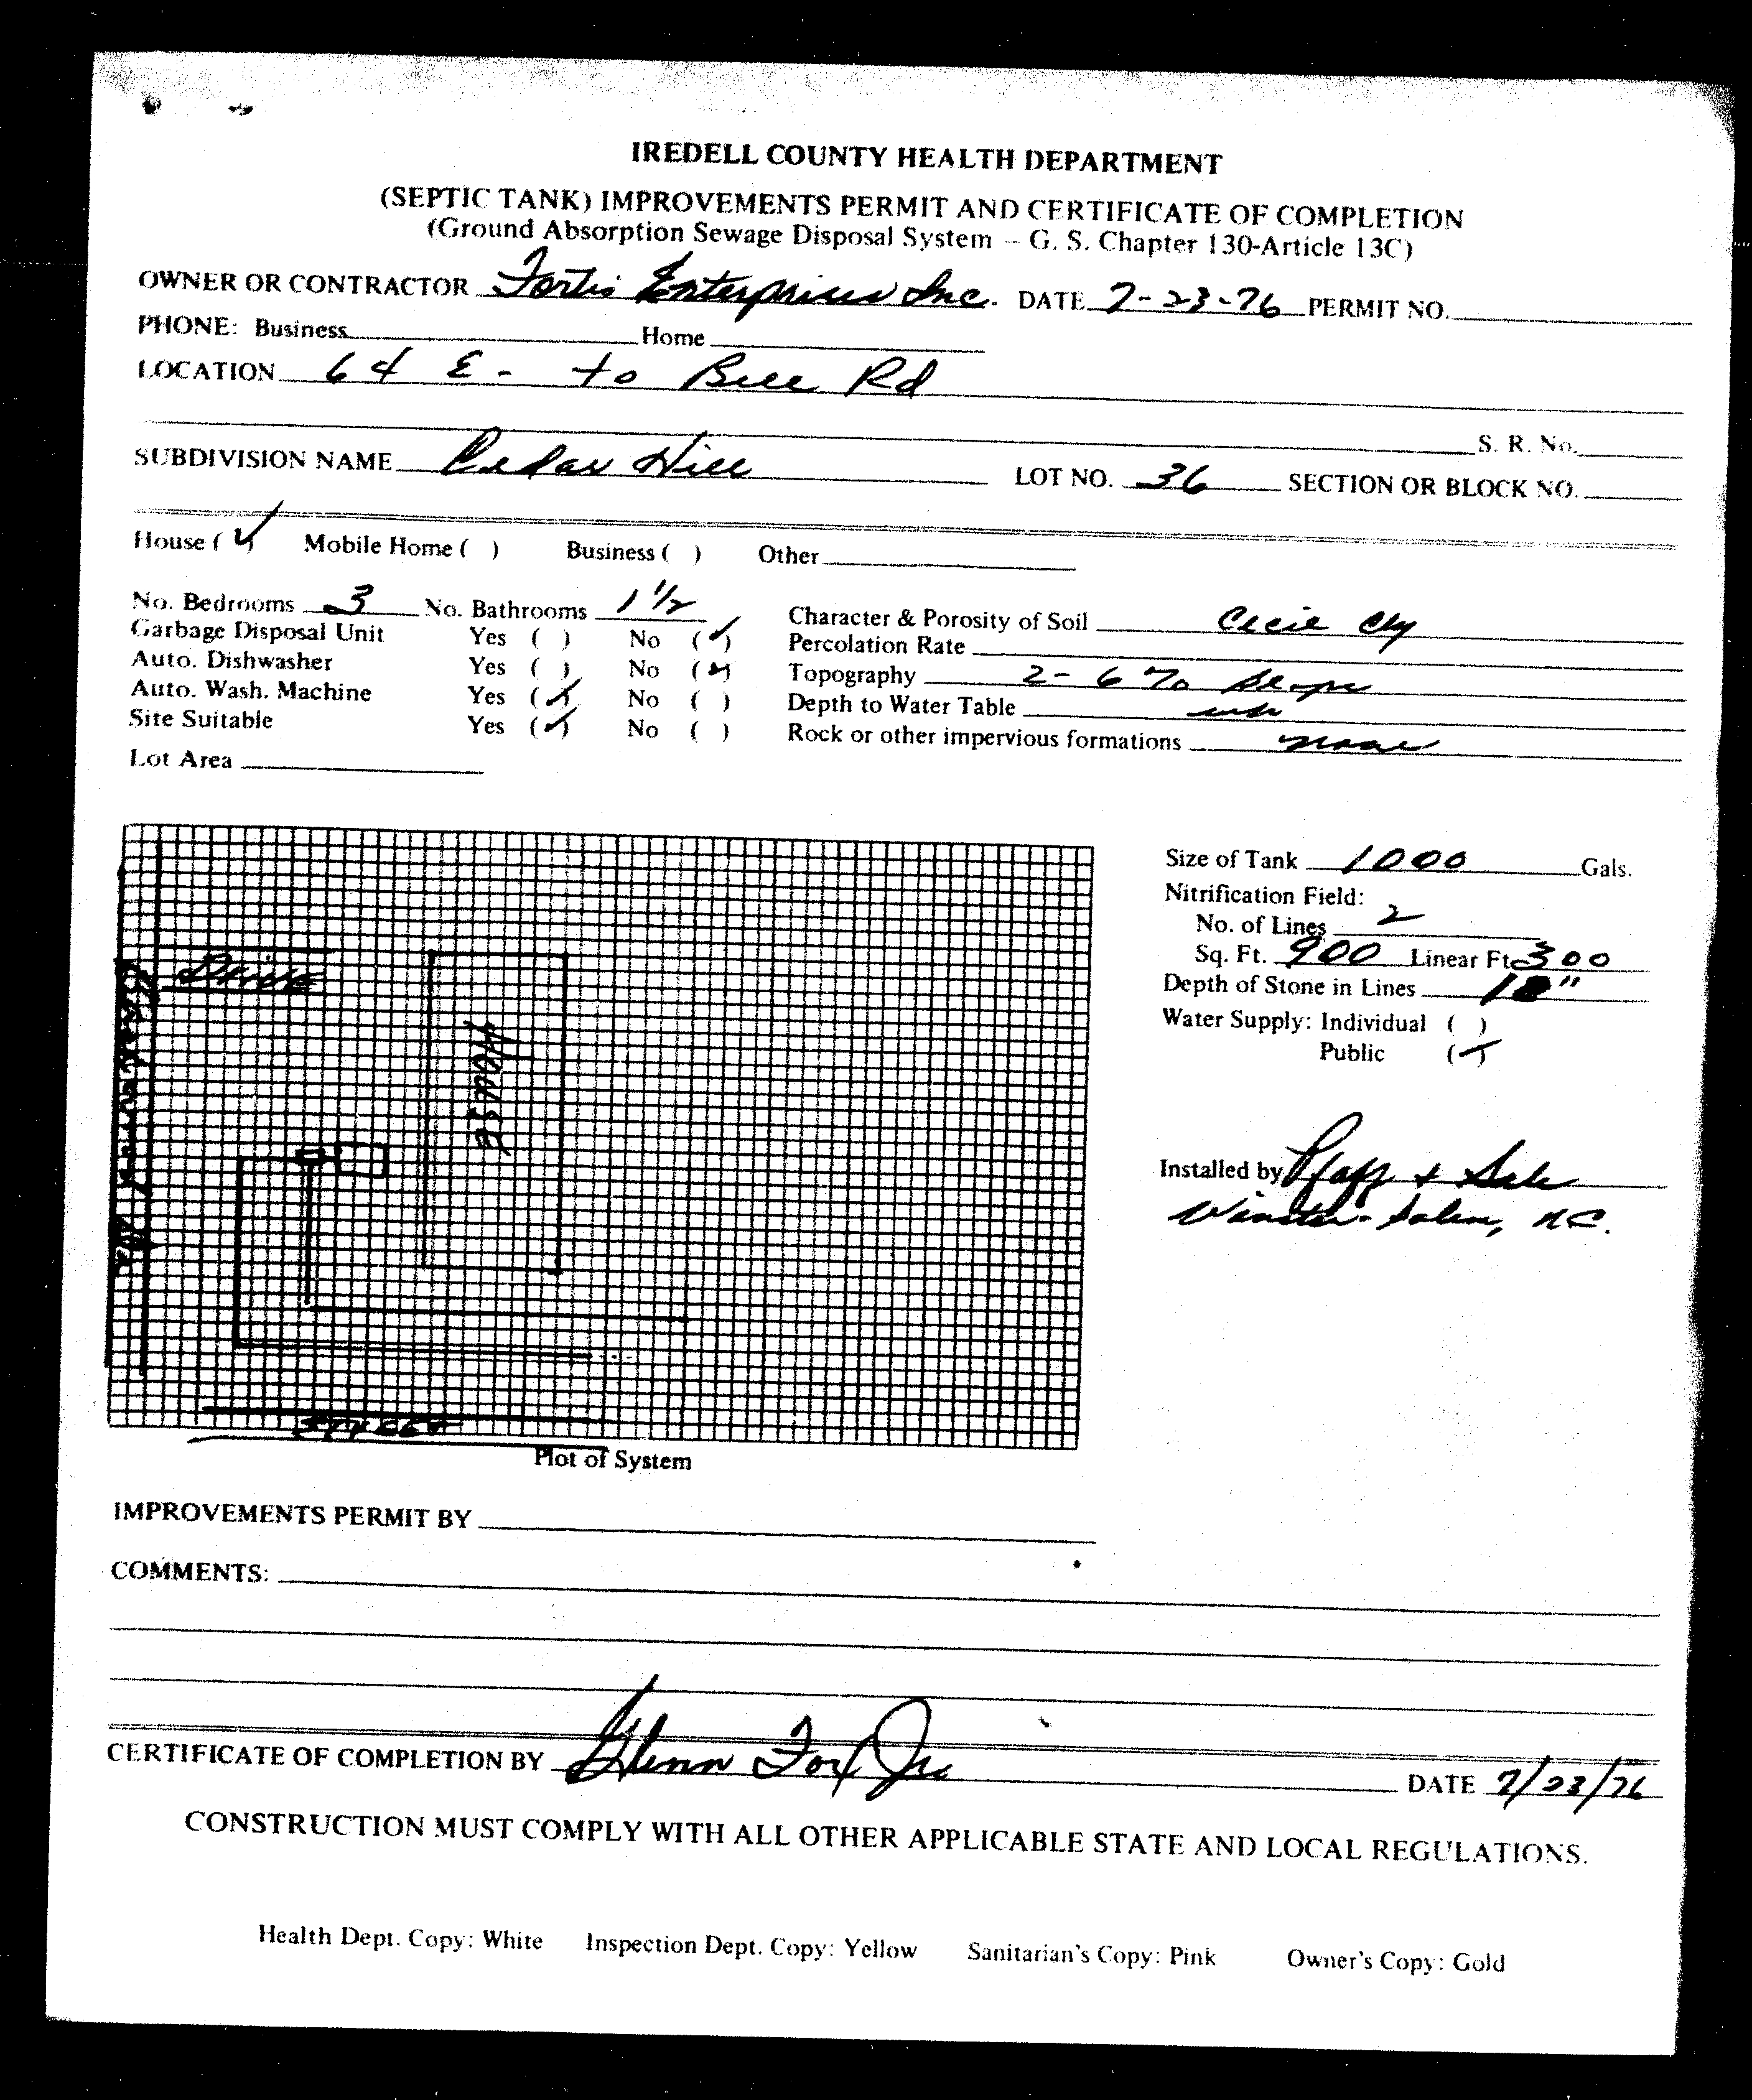 IREDELL COUNTY HEALTH DEPARTMENT
(SEPTIC TANK) IMPROVEMENTS PERMIT AND CERTIFICATE OF COMPLETION
(Ground Absorption Sewage Disposal System – G. S. Chapter 130-Article 13C)
OWNER OR CONTRACTOR Fortis Enterprises Inc. DATE 7-23-76 PERMIT NO.
PHONE: Business Home
LOCATION 64 E - to Bell Rd
S. R. No.
SUBDIVISION NAME Cedar Hill LOT NO. 36 SECTION OR BLOCK NO.
House (✓) Mobile Home ( ) Business ( ) Other
No. Bedrooms 3 No. Bathrooms 1 1/2 Character & Porosity of Soil Cecil Cly
Garbage Disposal Unit Yes ( ) No (✓) Percolation Rate
Auto. Dishwasher Yes ( ) No (✓) Topography 2-6% slope
Auto. Wash. Machine Yes (✓) No ( ) Depth to Water Table
Site Suitable Yes (✓) No ( ) Rock or other impervious formations none
Lot Area
Size of Tank 1000 Gals.
Nitrification Field:
No. of Lines 2
Sq. Ft. 900 Linear Ft. 300
Depth of Stone in Lines 12"
Water Supply: Individual ( )
Public (✓)
Drive
House
Installed by Pfaff + Sale
Winston-Salem, N.C.
Street
Plot of System
IMPROVEMENTS PERMIT BY
COMMENTS:
CERTIFICATE OF COMPLETION BY Glenn Fox Jr DATE 7/23/76
CONSTRUCTION MUST COMPLY WITH ALL OTHER APPLICABLE STATE AND LOCAL REGULATIONS.
Health Dept. Copy: White Inspection Dept. Copy: Yellow Sanitarian's Copy: Pink Owner's Copy: Gold